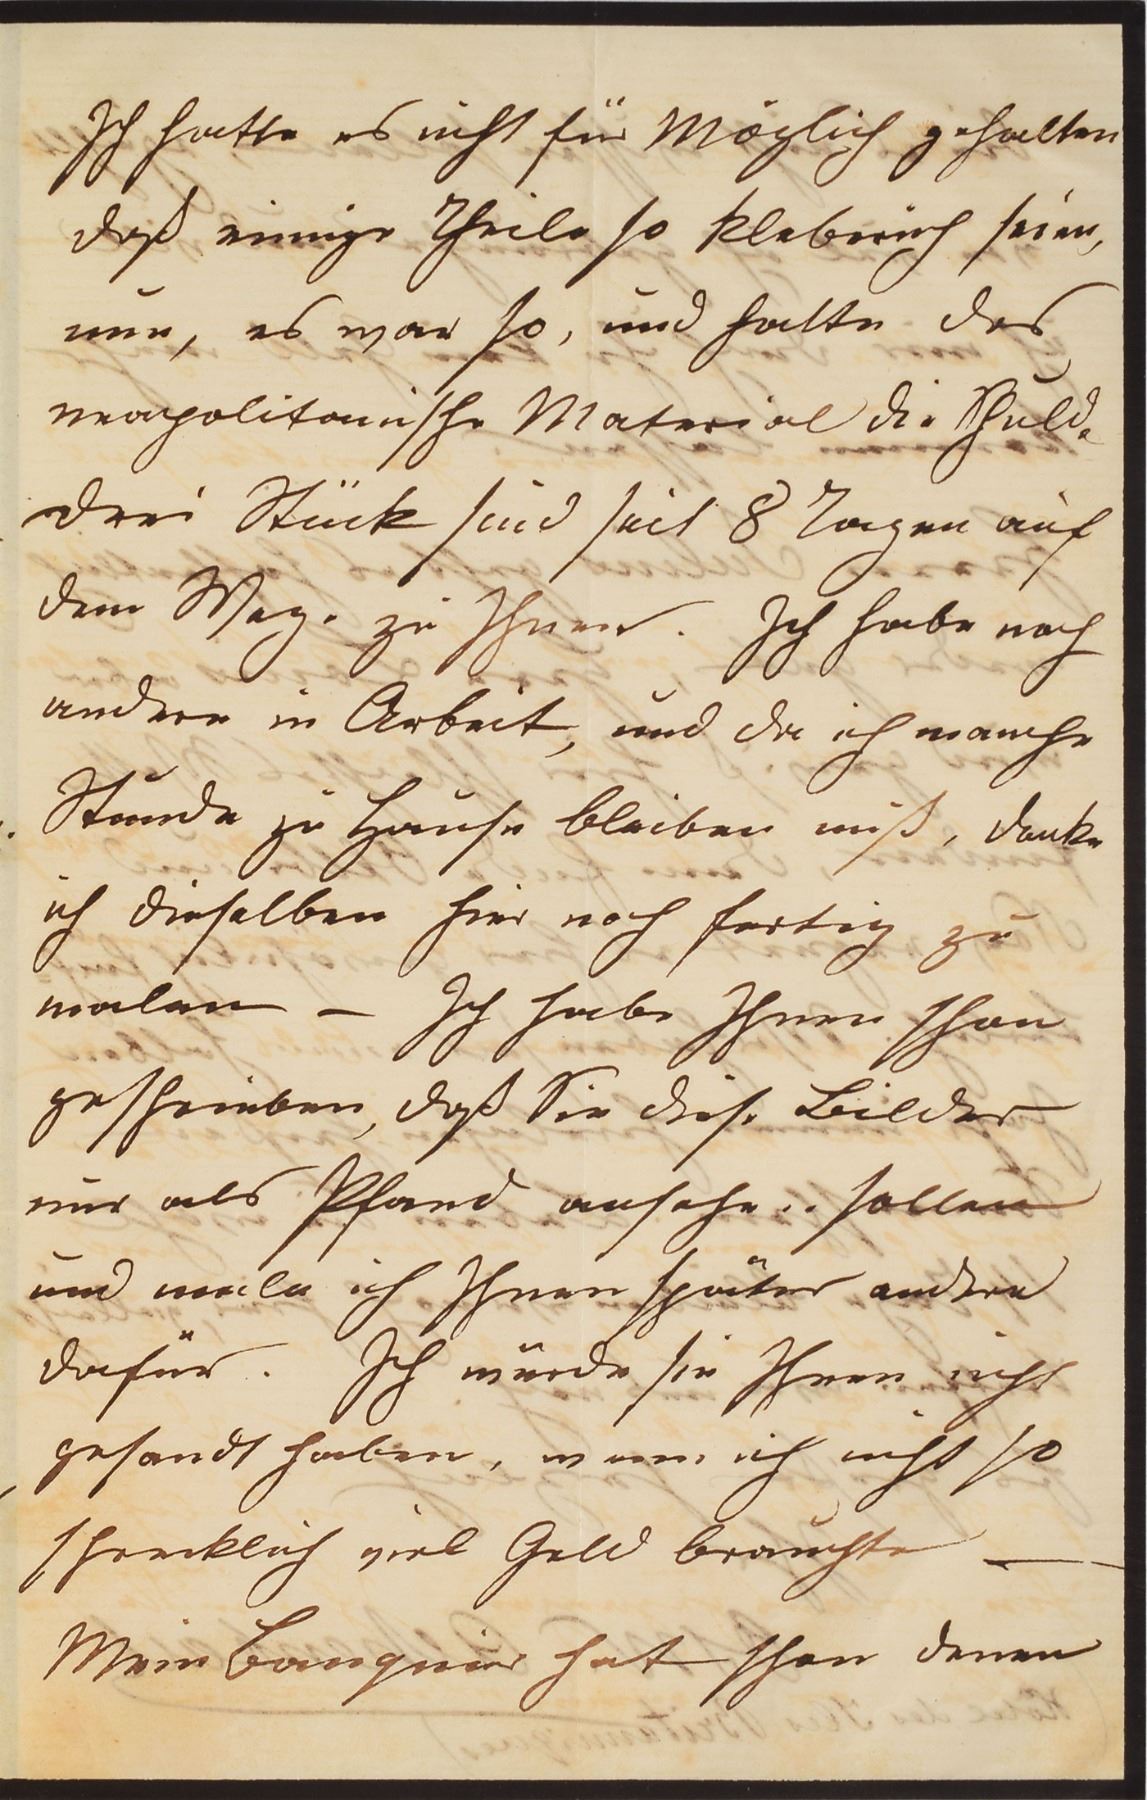 Ich hatte es nicht für Möglich gehalten
daß einige Theile so kleberich seien,
nun, es war so, und hatte das
neapolitanische Material die Schuld.
drei Stück sind seit 8 Tagen auf
dem Wege zu Ihnen. Ich habe noch
andere in Arbeit, und da ich manche
Stunde zu Hause bleiben muß, denke
ich dieselben hier noch fertig zu
malen – Ich habe Ihnen schon
geschrieben, daß Sie diese Bilder
nur als Pfand ansehen sollen
und male ich Ihnen später andere
dafür. Ich würde sie Ihnen nicht
gesandt haben, wenn ich nicht so
schrecklich viel Geld brauchte —
Mein Banquier hat schon denen